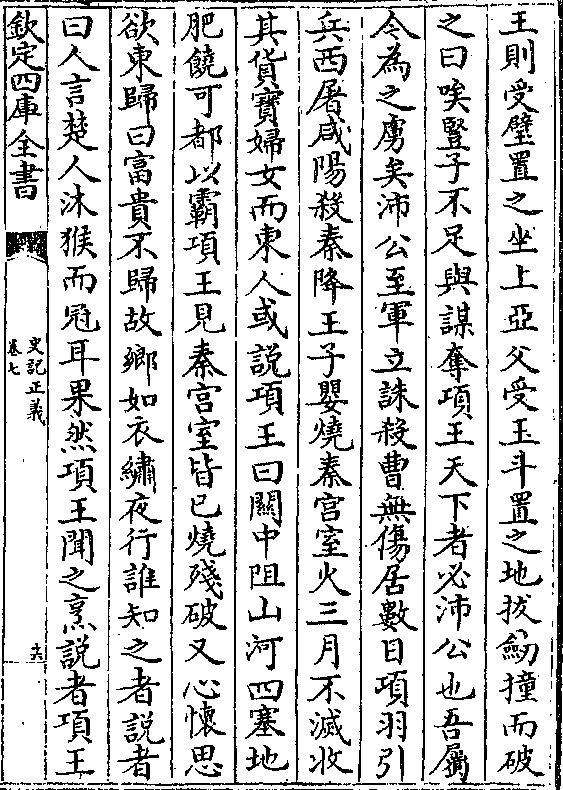 王則受璧置之坐上亞父受玉斗置之地拔劒撞而破
之曰唉豎子不足與謀奪項王天下者必沛公也吾屬
今為之虜矣沛公至軍立誅殺曹無傷居數日項羽引
兵西屠咸陽殺秦降王子嬰燒秦宫室火三月不滅收
其貨寳婦女而東人或說項王曰關中阻山河四塞地
肥饒可都以霸項王見秦宫室皆已燒殘破又心懷思
欲東歸曰富貴不歸故鄉如衣繡夜行誰知之者說者
曰人言楚人沐猴而冠耳果然項王聞之烹說者項王
欽定四庫全書
史記正義
卷七
十六